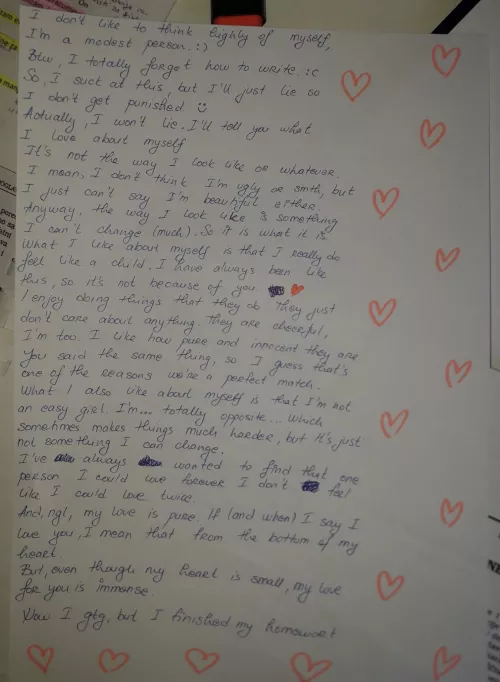 I don't like to think highly of myself,
I'm a modest person. :)
Btw, I totally forget how to write. :c
So, I suck at this, but I'll just lie so
I don't get punished
Actually, I won't lie. I'll tell you what
I love about myself
It's not the way I look like or whatever.
I mean, I don't think I'm ugly or smth, but
I just can't say I'm beautiful either.
Anyway, the way I look like is something
I can't change (much). So it is what it is.
What I like about myself is that I really do
feel like a child. I have always been like
this, so it's not because of you.
I enjoy doing things that they do They just
don't care about anything. They are cheerful,
I'm too. I like how pure and innocent they are
You said the same thing, so I guess that's
one of the reasons we're a perfect match.
What I also like about myself is that I'm not
an easy girl. I'm... totally opposite... Which
sometimes makes things much harder, but it's just
not something I can change.
I've always wanted to find that one
person I could love forever I don't feel
like I could love twice.
And, ngl, my love is pure. If (and when) I say I
love you, I mean that from the bottom of my
heart.
But, even though my heart is small, my love
for you is immense
Now I gtg, but I finished my homework